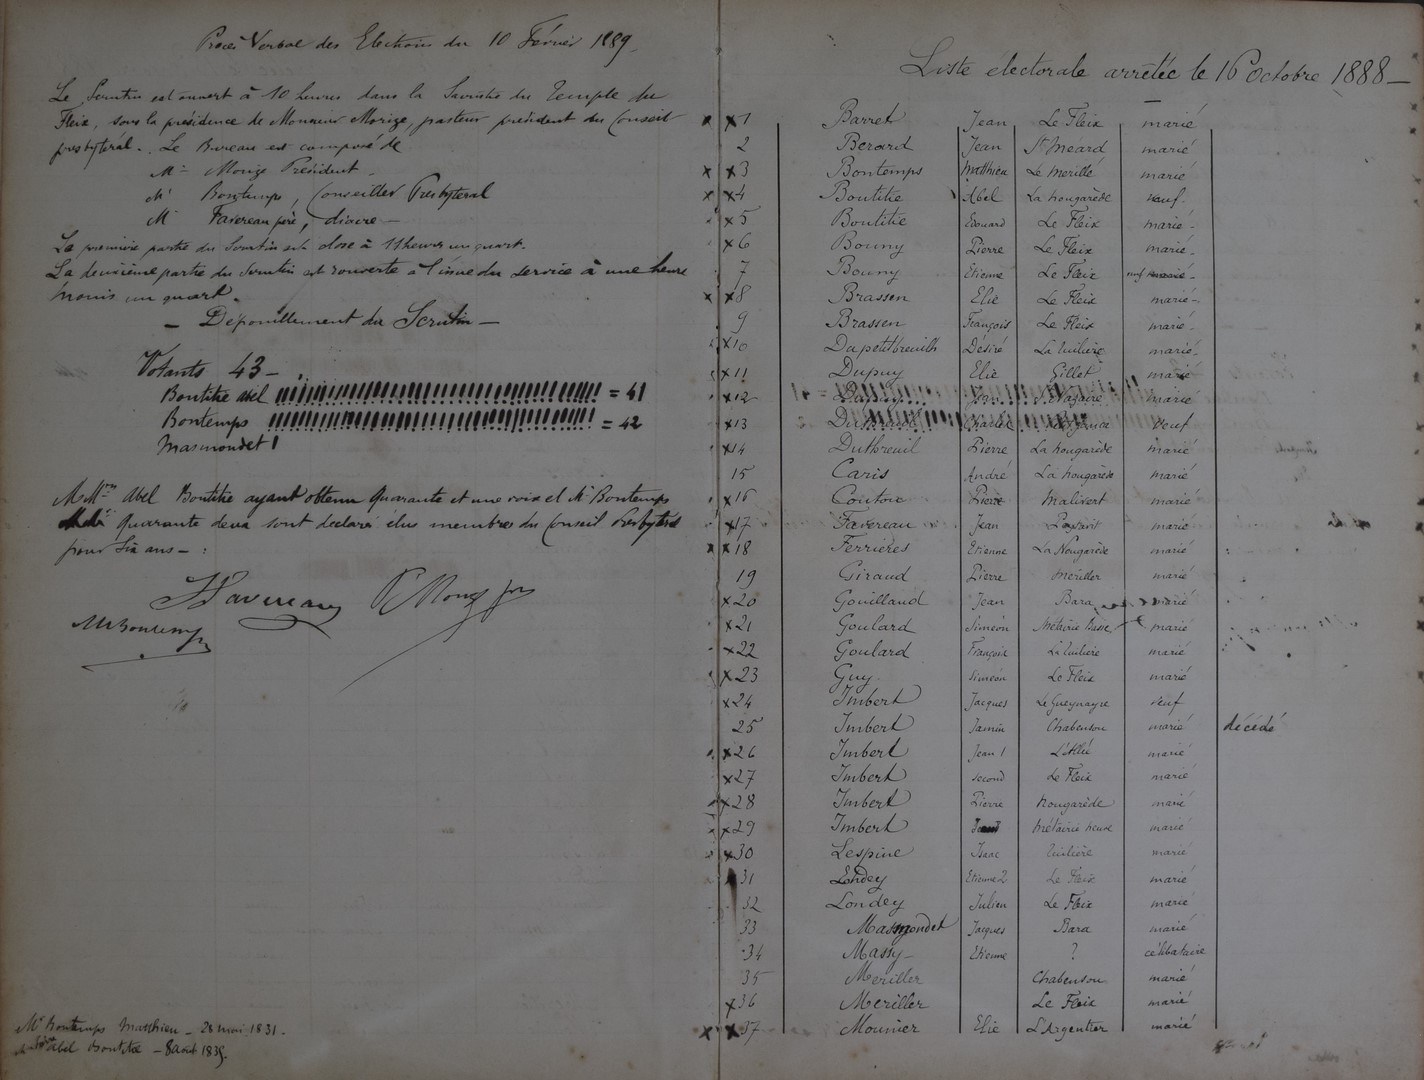 Procès Verbal des Elections du 10 Février 1889.
Le Scrutin est ouvert à 10 heures dans la Sacristie du Temple du
Fleix, sous la présidence de Monsieur Morize, pasteur président du Conseil
presbytéral. Le Bureau est composé de
Mr Morize Président.
Mr Bontemps, Conseiller Presbytéral
Mr Favereau père, diacre —
La première partie du Scrutin est close à 11 heures un quart.
La deuxième partie du Scrutin est rouverte à l'issue du service à une heure
moins un quart.
— Dépouillement du Scrutin —
Votants 43 —
Boutitie abel = 41
Bontemps = 42
Masmondet 1
MMrs Abel Boutitie ayant obtenu Quarante et une voix et Mr Bontemps
Quarante deux sont déclarés élus membres du Conseil Presbytéral
pour Six ans — :
Favereau
M Bontemps
Mr Bontemps Matthieu — 28 mai 1831 —
Abel Boutitie — 8 août 1835.
Liste électorale arrêtée le 16 octobre 1888 —
x x 1 Barret Jean Le Fleix marié
2 Berard Jean St Meard marié
x x 3 Bontemps Matthieu Le Merillé marié
x x 4 Boutitie Abel La Nougarède veuf
x 5 Boutitie Edouard Le Fleix marié
x 6 Bouny Pierre Le Fleix marié
7 Bouny Etienne Le Fleix veuf
x x 8 Brassen Elie Le Fleix marié
9 Brassen François Le Fleix marié
x 10 Dupetitbreuilh Désiré La tuilière marié
x 11 Dupuy Elie Gillet marié
x 12 marié
x 13 Charles veuf
x 14 Dutbreuil Pierre La Nougarède marié
15 Caris André La Nougarède marié
x 16 Coutou Pierre Malivert marié
x 17 Favereau Jean marié
x x 18 Ferrières Etienne La Nougarède marié
19 Giraud Pierre Meriller marié
x 20 Gouillaud Jean Bara marié
x 21 Goulard Siméon Métairie Basse marié
x 22 Goulard François La tuilière marié
x 23 Guy Siméon Le Fleix marié
x 24 Imbert Jacques Le Gueynayre veuf
25 Imbert Jamin Chabensou marié décédé
x 26 Imbert Jean 1 marié
x 27 Imbert second Le Fleix marié
x 28 Imbert Pierre Nougarède marié
x 29 Imbert Métairie neuve marié
x 30 Lespine Isaac tuilière marié
31 Londey Etienne 2 Le Fleix marié
32 Londey Julien Le Fleix marié
33 Masmondet Jacques Bara marié
34 Massy — Etienne ? célibataire
35 Meriller Chabensou marié
x 36 Meriller Le Fleix marié
x x 37 Mounier Elie L'Argentier marié